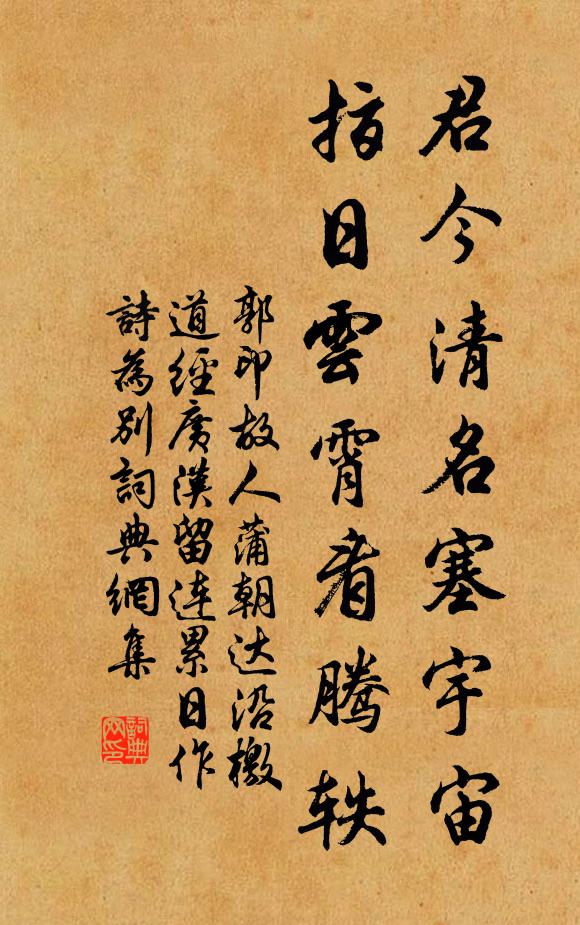 君今清名塞宇宙
指日雲霄看騰轶
郭印故人蒲朝达沿檄
道經广漢留连累日作
詩為别詞典網集
詞典
网印